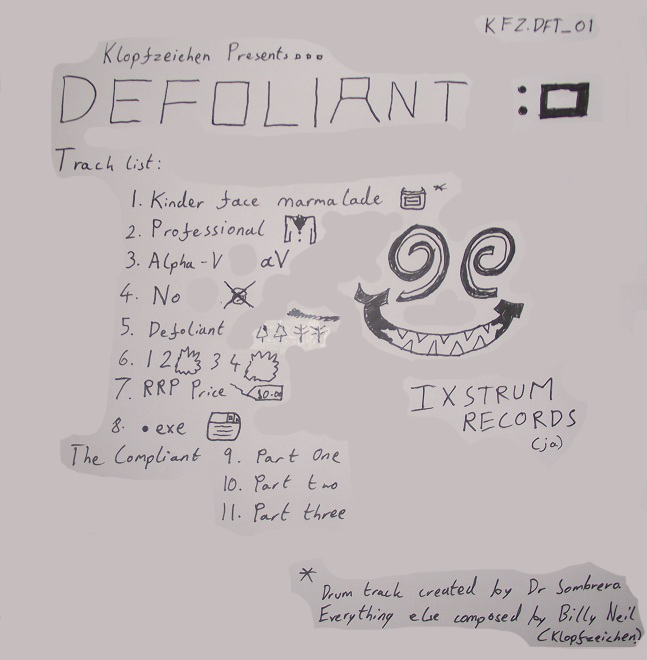 KFZ.DFT_01
Klopfzeichen Presents...
DEFOLIANT :
Track list:
1. Kinder face marmalade *
2. Professional
3. Alpha-V αV
4. No
5. Defoliant
6. 1 2 3 4
7. RRP Price $0.00
8. •exe
The Compliant 9. Part One
10. Part two
11. Part three
IXSTRUM
RECORDS
(ja)
* Drum track created by Dr Sombrero
Everything else composed by Billy Neil
(Klopfzeichen)